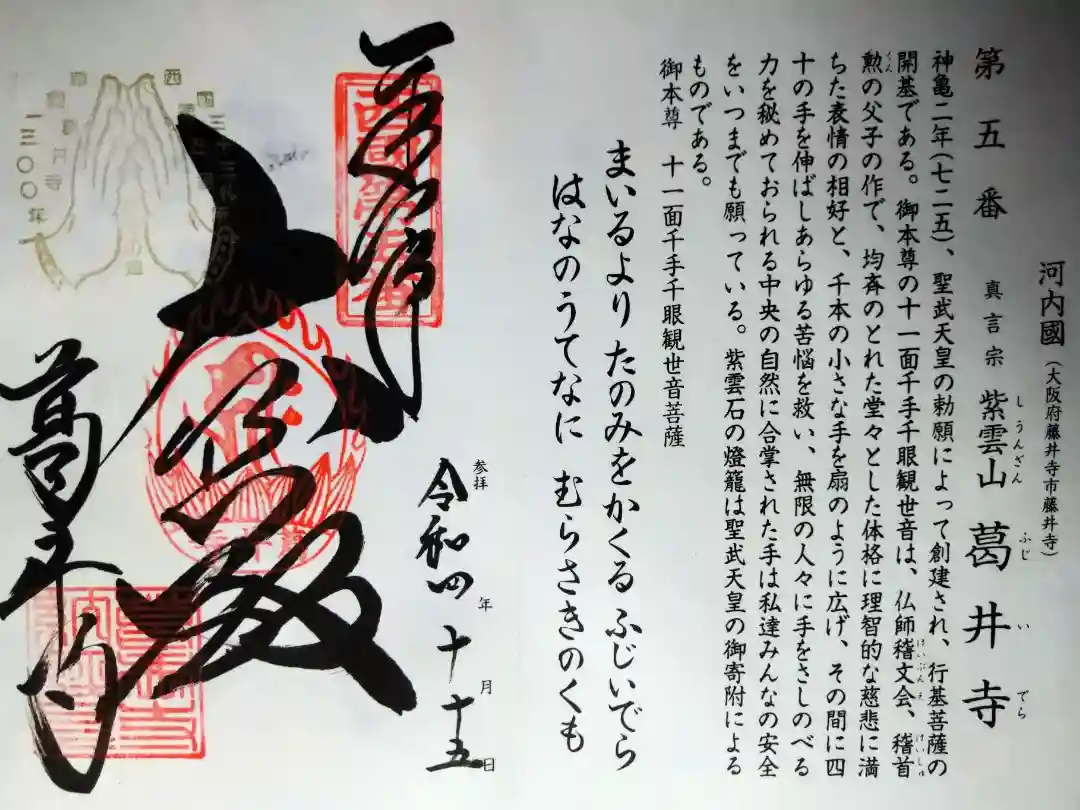 河内國(大阪府藤井寺市藤井寺)
第五番 真言宗 紫雲山 葛井寺
しうんざん ふじ い でら
神亀二年(七二五)、聖武天皇の勅願によって創建され、行基菩薩の
開基である。御本尊の十一面千手千眼観世音は、仏師稽文会、稽首
けいぶんえ けいしゅ
勲の父子の作で、均斉のとれた堂々とした体格に理智的な慈悲に満
くん
ちた表情の相好と、千本の小さな手を扇のように広げ、その間に四
十の手を伸ばしあらゆる苦悩を救い、無限の人々に手をさしのべる
力を秘めておられる中央の自然に合掌された手は私達みんなの安全
をいつまでも願っている。紫雲石の燈籠は聖武天皇の御寄附による
ものである。
御本尊 十一面千手千眼観世音菩薩
まいるより たのみをかくる ふじいでら
はなのうてなに むらさきのくも
参拝
令和四年十月十五日
西國第五番
大悲殿
葛井寺
一三〇〇年